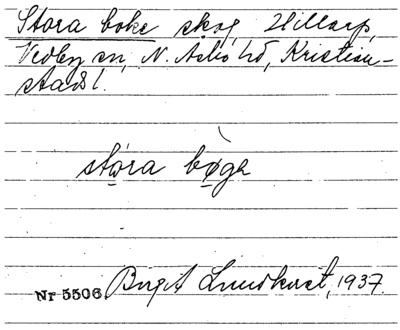 Stora boke skog Hillarp,
Vedby sn, N. Åsbo hd, Kristian-
stads l.
stora bøga
Nr 5506 Birgit Lundkvist, 1937.